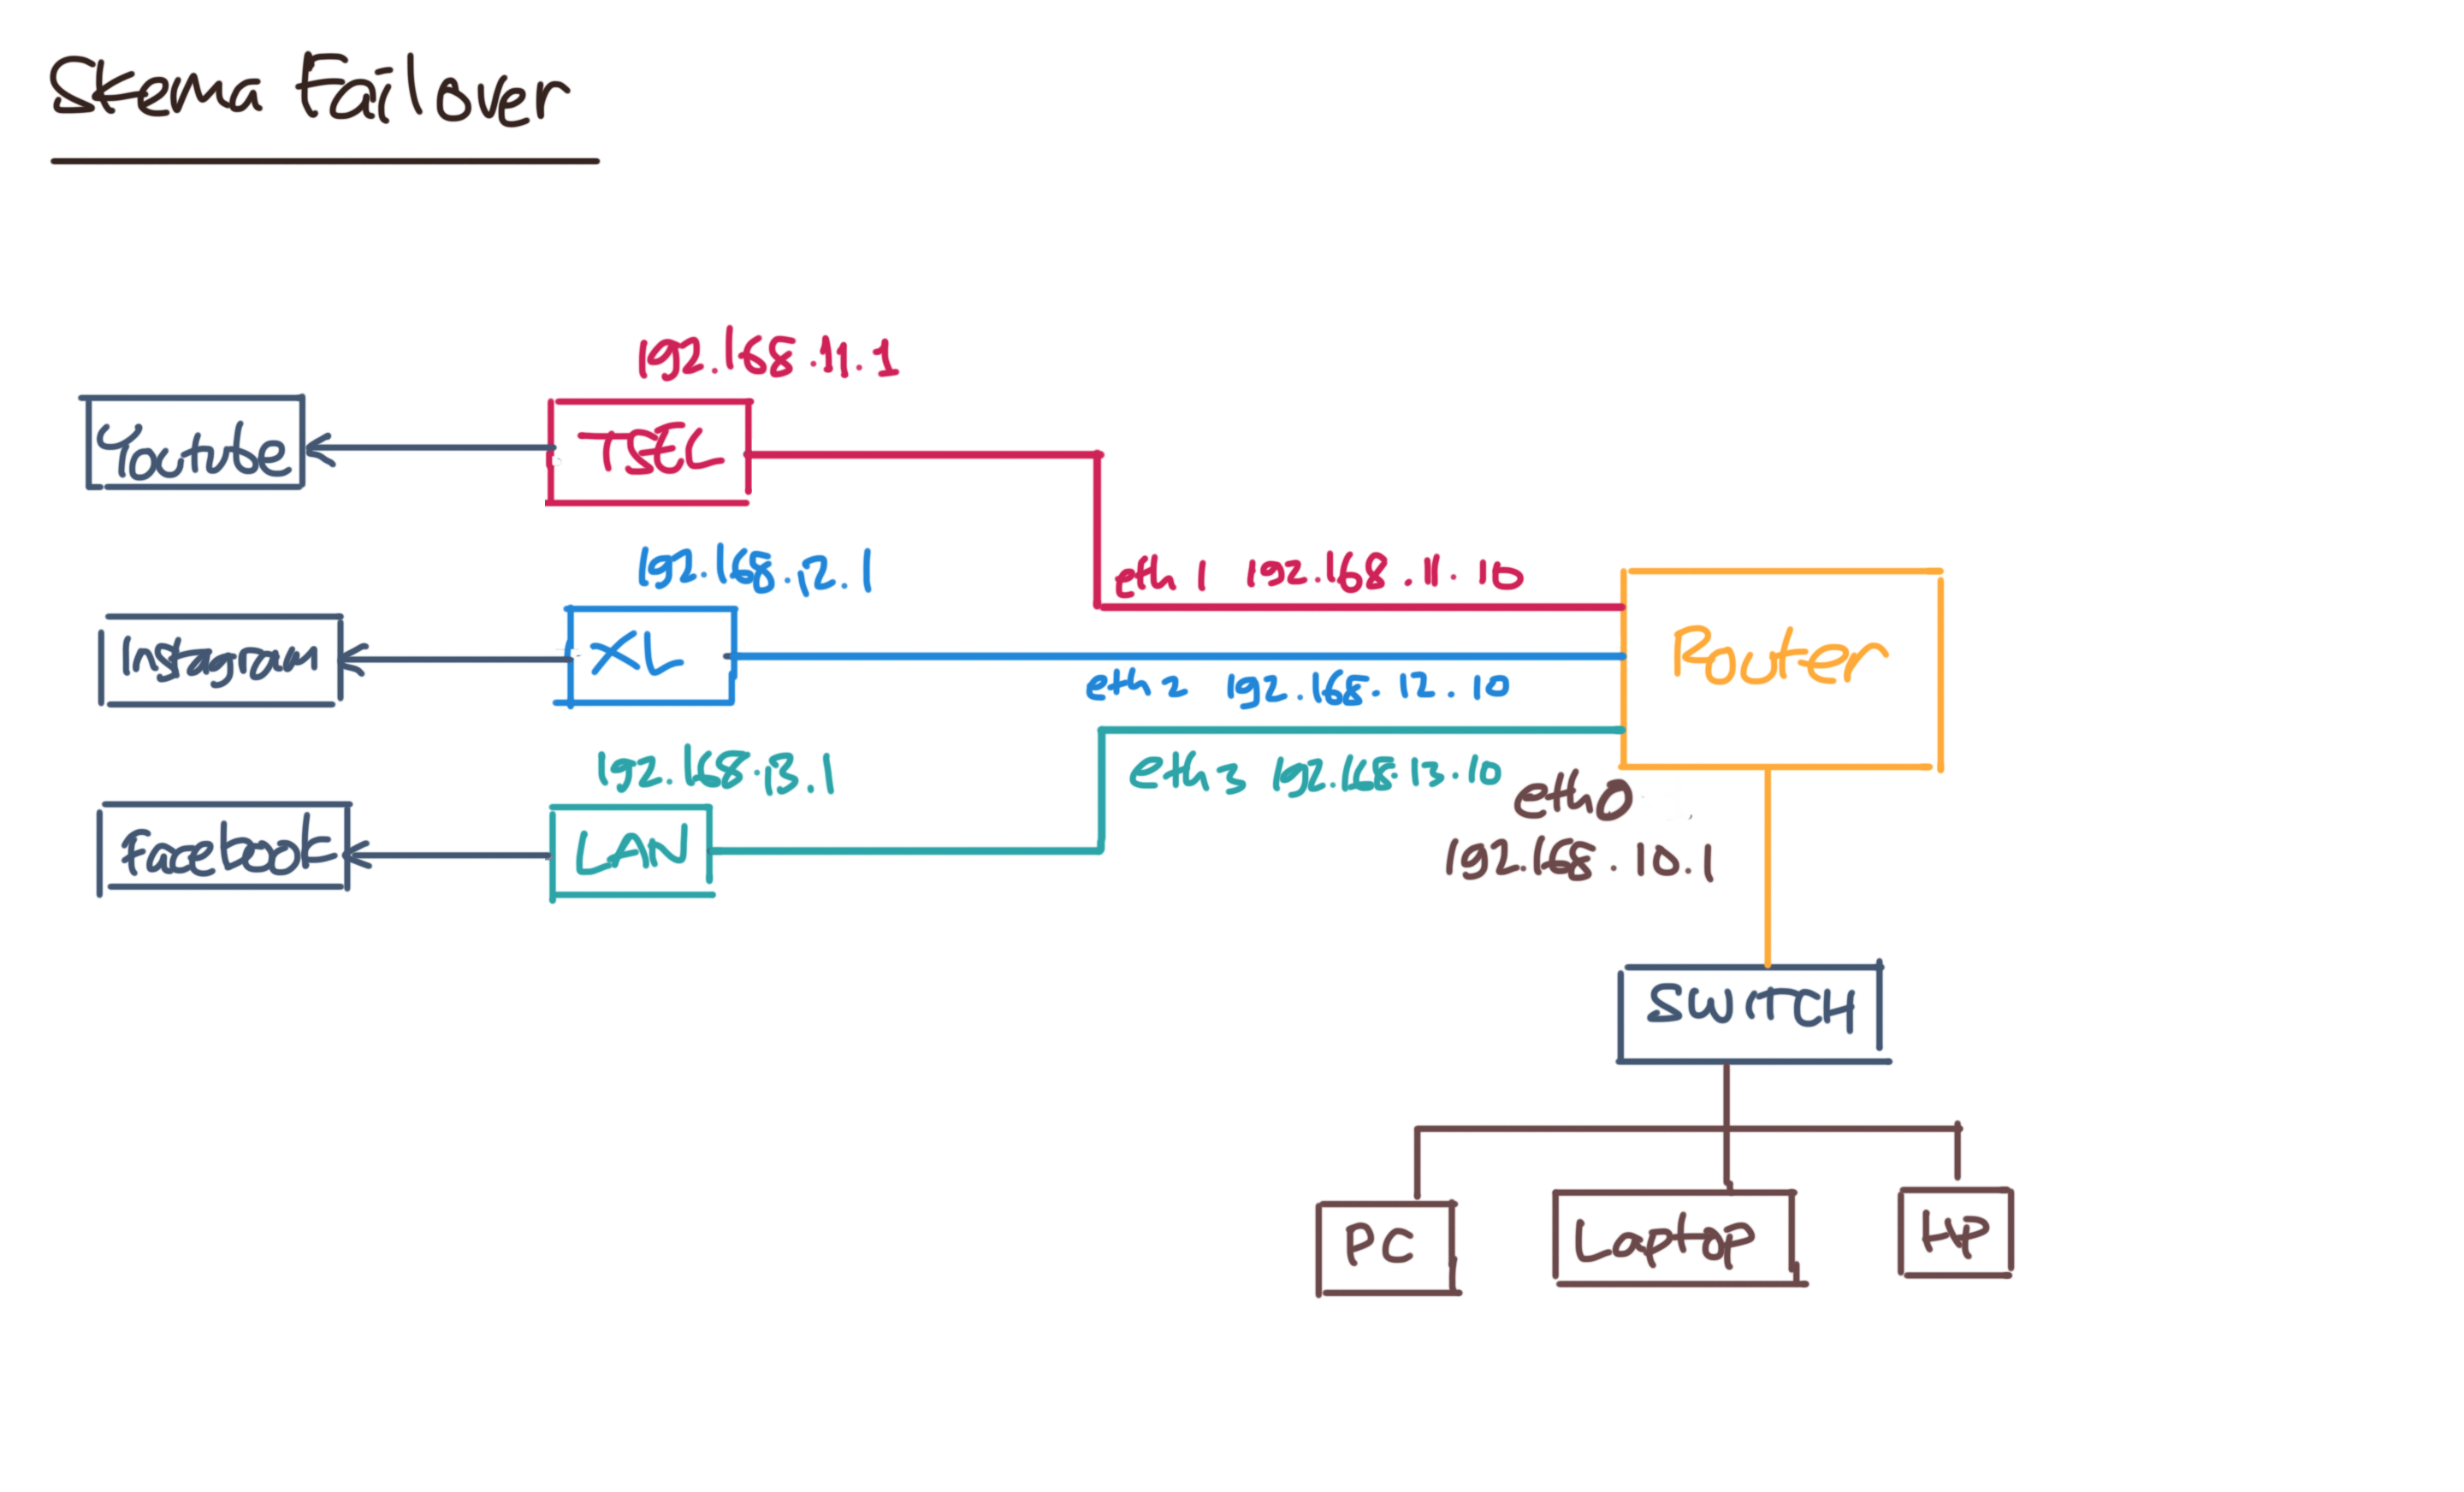 Skema Failover
192.168.11.1
Youtube
TSEL
192.168.12.1
eth 1 192.168.11.10
Instagram
XL
Router
eth 2 192.168.12.10
192.168.13.1
eth 3 192.168.13.10
eth0
Facebook
LAN
192.168.10.1
SWITCH
PC
Laptop
HP